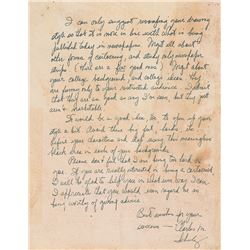 I can only suggest revamping your drawing
style so that it is more in line with what is being
published today in newspapers. Forget all about
other forms of cartooning and study only newspaper
strips (there are a few good ones). Forget about
your college background, and college ideas. They
are funny only to your restricted audience. I admit
that they are as good as any I've seen, but they just
aren't marketable.
It would be a good idea, too, to open up your
style a bit. Avoid those big feet, hands, etc.
before your downtime and stay away from meaningless
black area in each of your backgrounds.
Please don't feel that I am being too hard on
you. If you are really interested in being a cartoonist
I will be glad to help you in whatever way I can.
I appreciate that you would even regard me as
being worthy of giving advice.
Best wishes in your
success —
Charles M.
Schulz